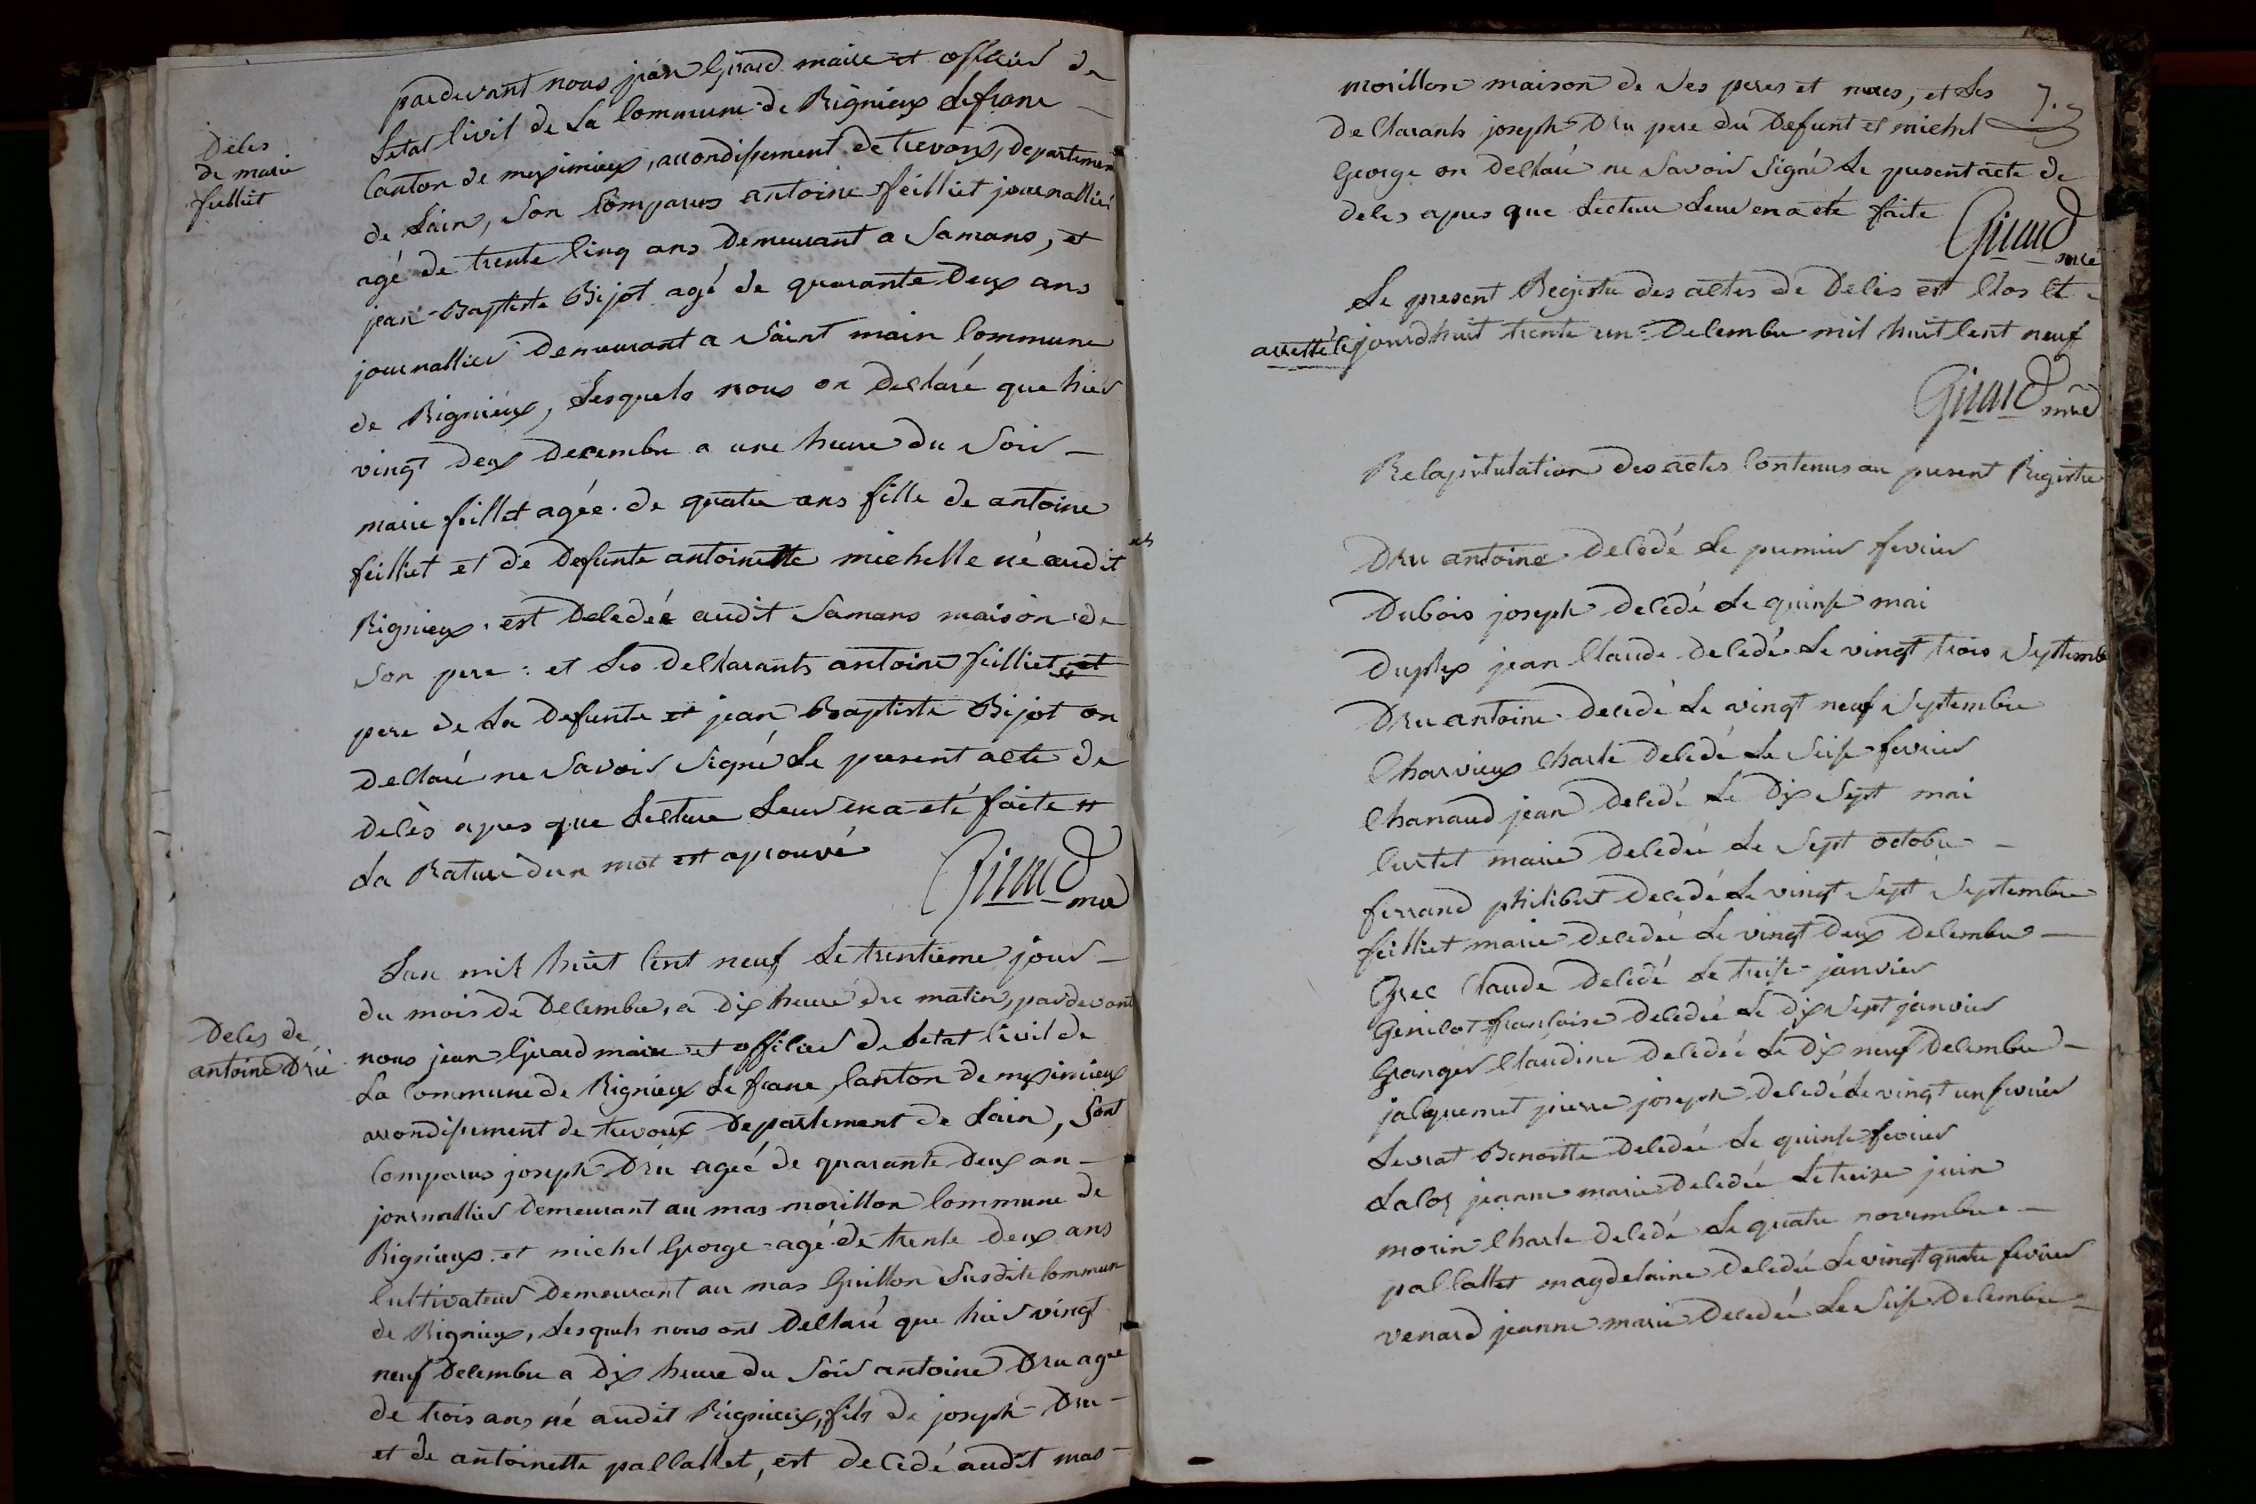 Deces
de marie
feilliet
pardevant nous jean Girard maire et officier de
Letat Civil de La Commune de Rignieux Lefranc
Canton de meximieux, arrondisement de trevoux, departement
de Lain, son Comparus antoine feilliet journallier
agé de trente Cinq ans demeurant a Samans, et
jean-Baptiste Bijot agé de quarante deux ans
journallier demeurant a Saint main Commune
de Rignieux, Lesquels nous on declaré que hier
vingt deux decembre a une heure du Soir
marie feillet agée de quatre ans fille de antoine
feilliet et de defunte antoinette michelle né audit
Rignieux. est decedée audit Samans maison de
Son pere : et Les declarants antoine feilliet et
pere de La defunte et jean Baptiste Bijot on
declaré ne Savoir Signé Le present acte de
decès apres que Lecture Leur en a eté faite
La Rature dun mot est aprouvé
Girard
Deces de
antoine Dru
Lan mil huit Cent neuf Le trentieme jour
du mois de decembre, a dix heure du matin, pardevant
nous jean Girard maire et officier de Letat Civil de
La Commune de Rignieux Le franc, Canton de meximieux
arrondisement de trevoux departement de Lain, Sont
Comparus joseph Dru ageé de quarante deux an
journallier demeurant au mas morillon Commune de
Rignieux. et michel George agé de trente deux ans
Cultivateur demeurant au mas Guillon Susdite Commune
de Rignieux, Lesquels nous ont declaré que hier vingt
neuf decembre a dix heure du Soir antoine Dru ageé
de trois ans né audit Rignieux, fils de joseph Dru
et de antoinette pallallet, est decedé audit mas
morillon maison de Ses peres et meres, et Les
declarants joseph Dru pere du defunt et michel
George on declaré ne Savoir Signé Le present acte de
deces apres que Lecture Leur en a eté faite
Girard
Le present Registre des actes de deces est Clos et
arretté Cejourdhuit trente un decembre mil huit Cent neuf
Girard
Recapitulation des actes Contenus au present Registre
Dru antoine decedé Le premier fevrier
Dubois joseph decedé Le quinse mai
Duplex jean Claude decedé Le vingt trois Septembre
Dru antoine decedé Le vingt neuf Septembre
Charvieux Charle decedé Le Seise fevrier
Chanaud jean decedé Le dix Sept mai
Curtet marie decedée Le Sept octobre
ferrand philibert decedé Le vingt Sept Septembre
feilliet marie decedée Le vingt deux decembre
Grec Claude decedé Le treise janvier
Genilot françoise decedée Le dix Sept janvier
Granger Claudine decedée Le dix neuf decembre
jacquemet pierre joseph decedé Le vingt un fevrier
Levrat Benoitte decedée Le quinse fevrier
Laloz jeanne marie decedée Le treize juin
morin Charle decedé Le quatre novembre
pallallet magdelaine decedée Le vingt quatre fevrier
venard jeanne marie decedée Le Seise decembre